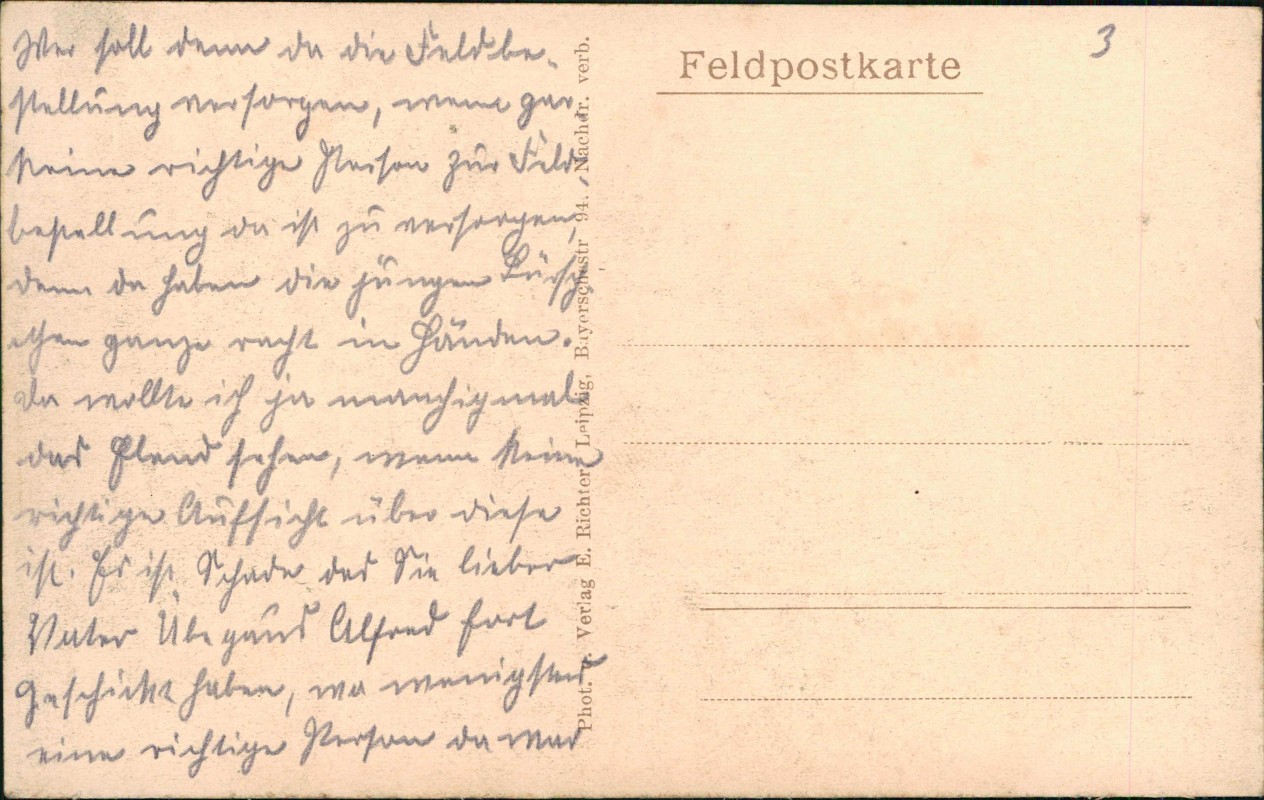 Wer soll denn da die Feldbe-
stellung versorgen, wenn gar
keine richtige Person zur Feld-
bestellung da ist zu versorgen,
denn da haben die jungen Bürsch-
chen ganze racht in Händen.
Da wollte ich ja manchigmal
das Elend sehen, wenn keine
richtige Aufsicht über diese
ist. Es ist Schade das Sie lieber
Vater Alfred fort
geschickt haben, wo wenigsten
eine richtige Person da war
Feldpostkarte
3
Phot. u. Verlag E. Richter, Leipzig, Bayerschestr. 94. Nachdr. verb.